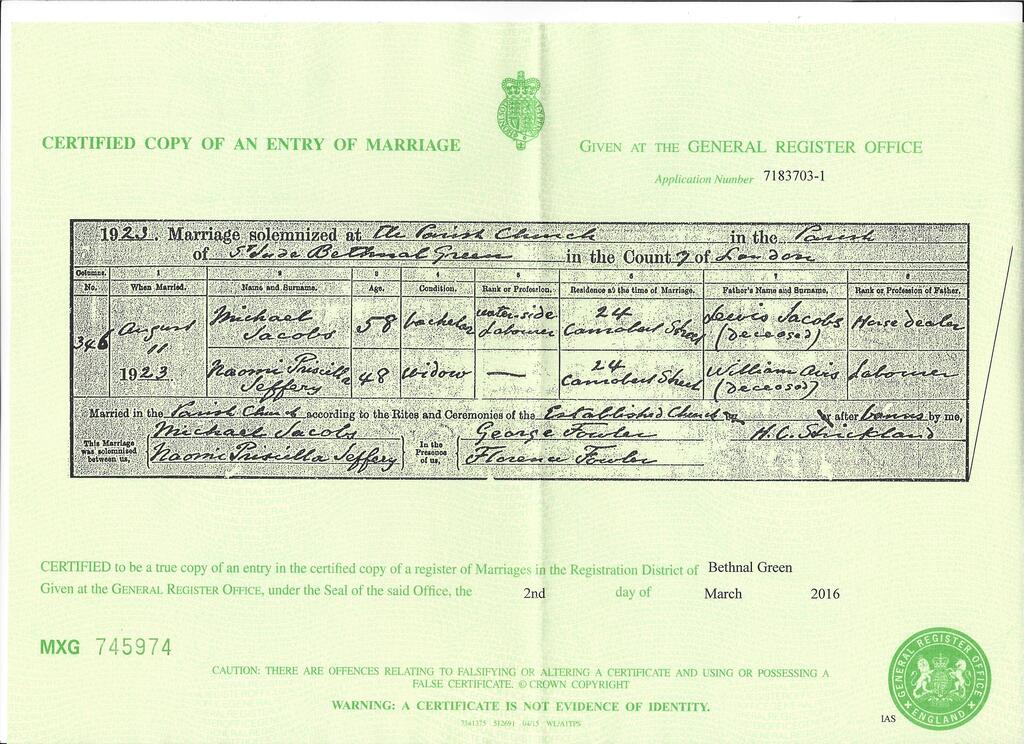 CERTIFIED COPY OF AN ENTRY OF MARRIAGE
GIVEN AT THE GENERAL REGISTER OFFICE
Application Number 7183703-1
1923. Marriage solemnized at the Parish Church in the Parish
of St Jude Bethnal Green in the County of London
Columns. 1 2 3 4 5 6 7 8
No. When Married. Name and Surname. Age. Condition. Rank or Profession. Residence at the time of Marriage. Father's Name and Surname. Rank or Profession of Father.
346 August 11 1923
Michael Jacobs 58 bachelor water-side Labourer 24 Camolent Street Lewis Jacobs (deceased) Horse dealer
Naomi Priscilla Jeffery 48 widow — 24 Camolent Street William Avis (deceased) Labourer
Married in the Parish Church according to the Rites and Ceremonies of the Established Church by or after banns by me,
This Marriage was solemnized between us, Michael Jacobs In the Presence of us, George Fowler H. C. Strickland
Naomi Priscilla Jeffery Florence Fowler
CERTIFIED to be a true copy of an entry in the certified copy of a register of Marriages in the Registration District of Bethnal Green
Given at the GENERAL REGISTER OFFICE, under the Seal of the said Office, the 2nd day of March 2016
MXG 745974
CAUTION: THERE ARE OFFENCES RELATING TO FALSIFYING OR ALTERING A CERTIFICATE AND USING OR POSSESSING A
FALSE CERTIFICATE. © CROWN COPYRIGHT
WARNING: A CERTIFICATE IS NOT EVIDENCE OF IDENTITY.
7341375 512691 04/15 WL/ATTPS
IAS
GENERAL REGISTER OFFICE
ENGLAND